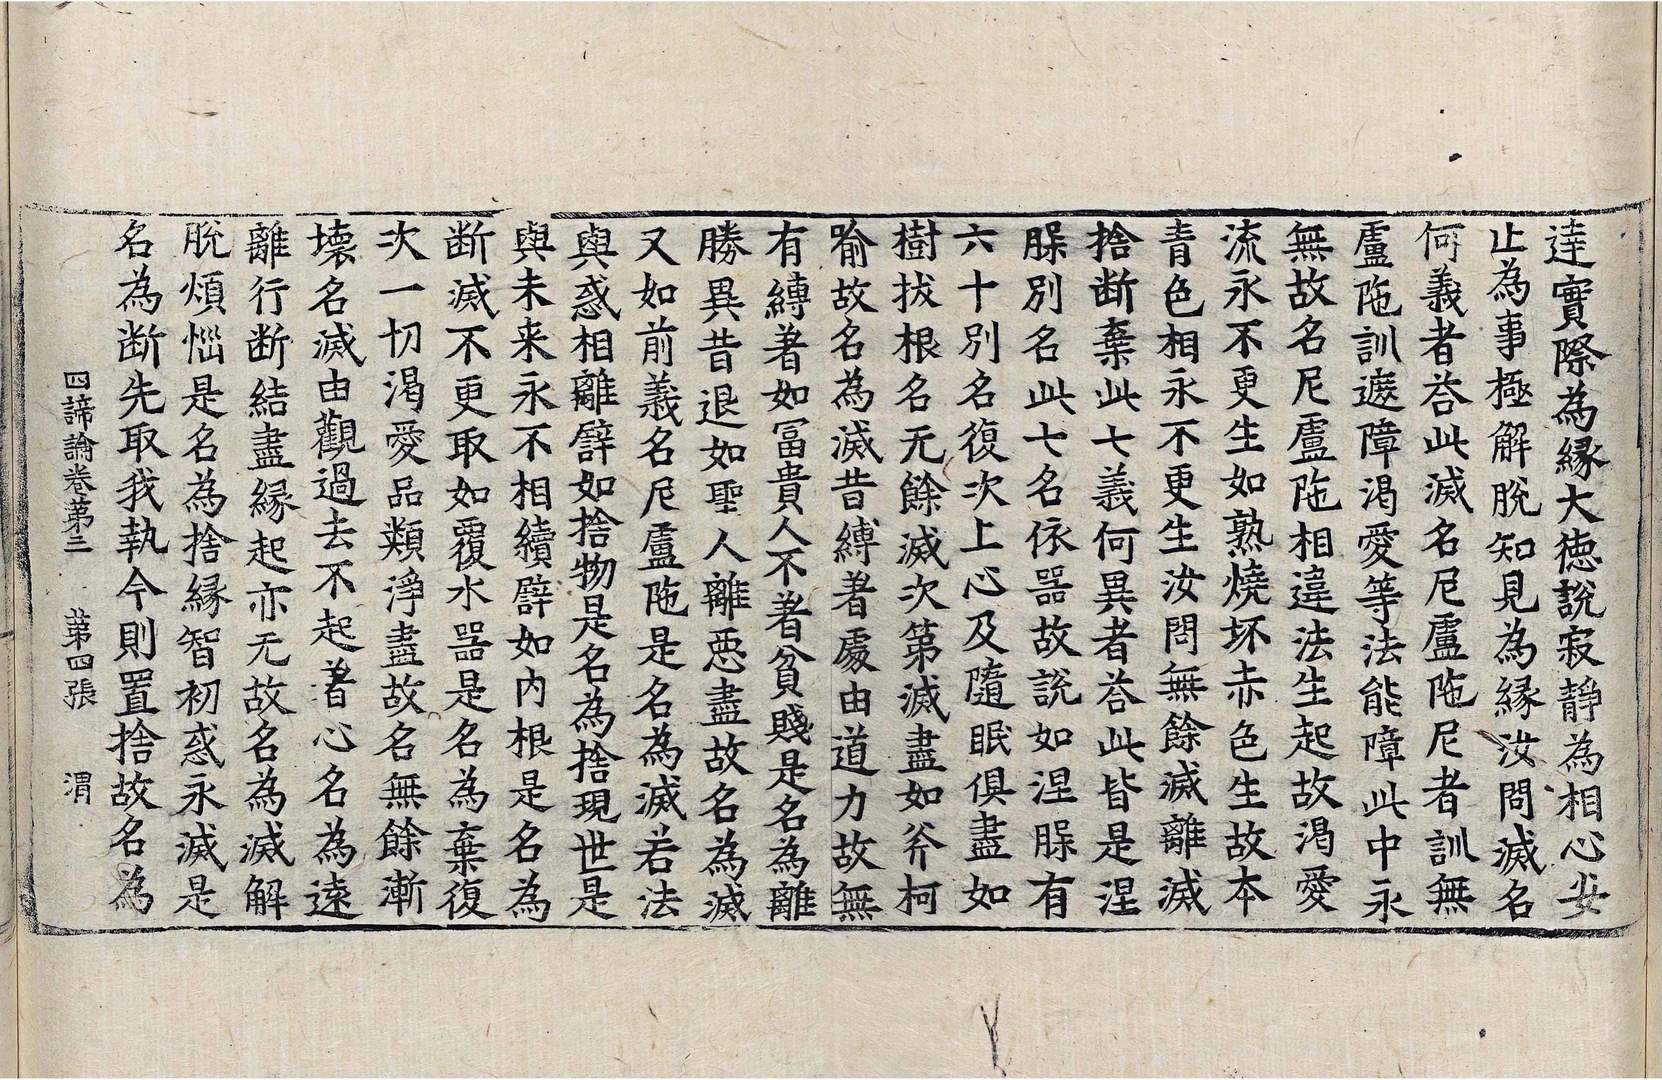 達實際為縁大徳說寂靜為相心安
止為事極解脫知見為縁汝問滅名
何義者荅此滅名尼盧陁尼者訓無
盧陁訓遮障渴愛等法能障此中永
無故名尼盧陁相違法生起故渴愛
流永不更生如熟燒坏赤色生故本
青色相永不更生汝問無餘滅離滅
捨断棄此七義何異者荅此皆是涅
脲別名此七名依噐故說如涅脲有
六十別名復次上心及隨眠俱盡如
樹拔根名无餘滅次第滅盡如斧柯
喻故名為滅昔縛著處由道力故無
有縛著如冨貴人不著貧賤是名為離
勝異昔退如聖人離惡盡故名為滅
又如前義名尼盧陁是名為滅若法
與惑相離譬如捨物是名為捨現世是
與未来永不相續譬如內根是名為
断滅不更取如覆水噐是名為棄復
次一切渴愛品類淨盡故名無餘漸
壊名滅由觀過去不起著心名為遠
離行断結盡縁起亦无故名為滅解
脫煩惱是名為捨縁智初惑永滅是
名為断先取我執今則置捨故名為
四諦論卷第三 第四張 渭